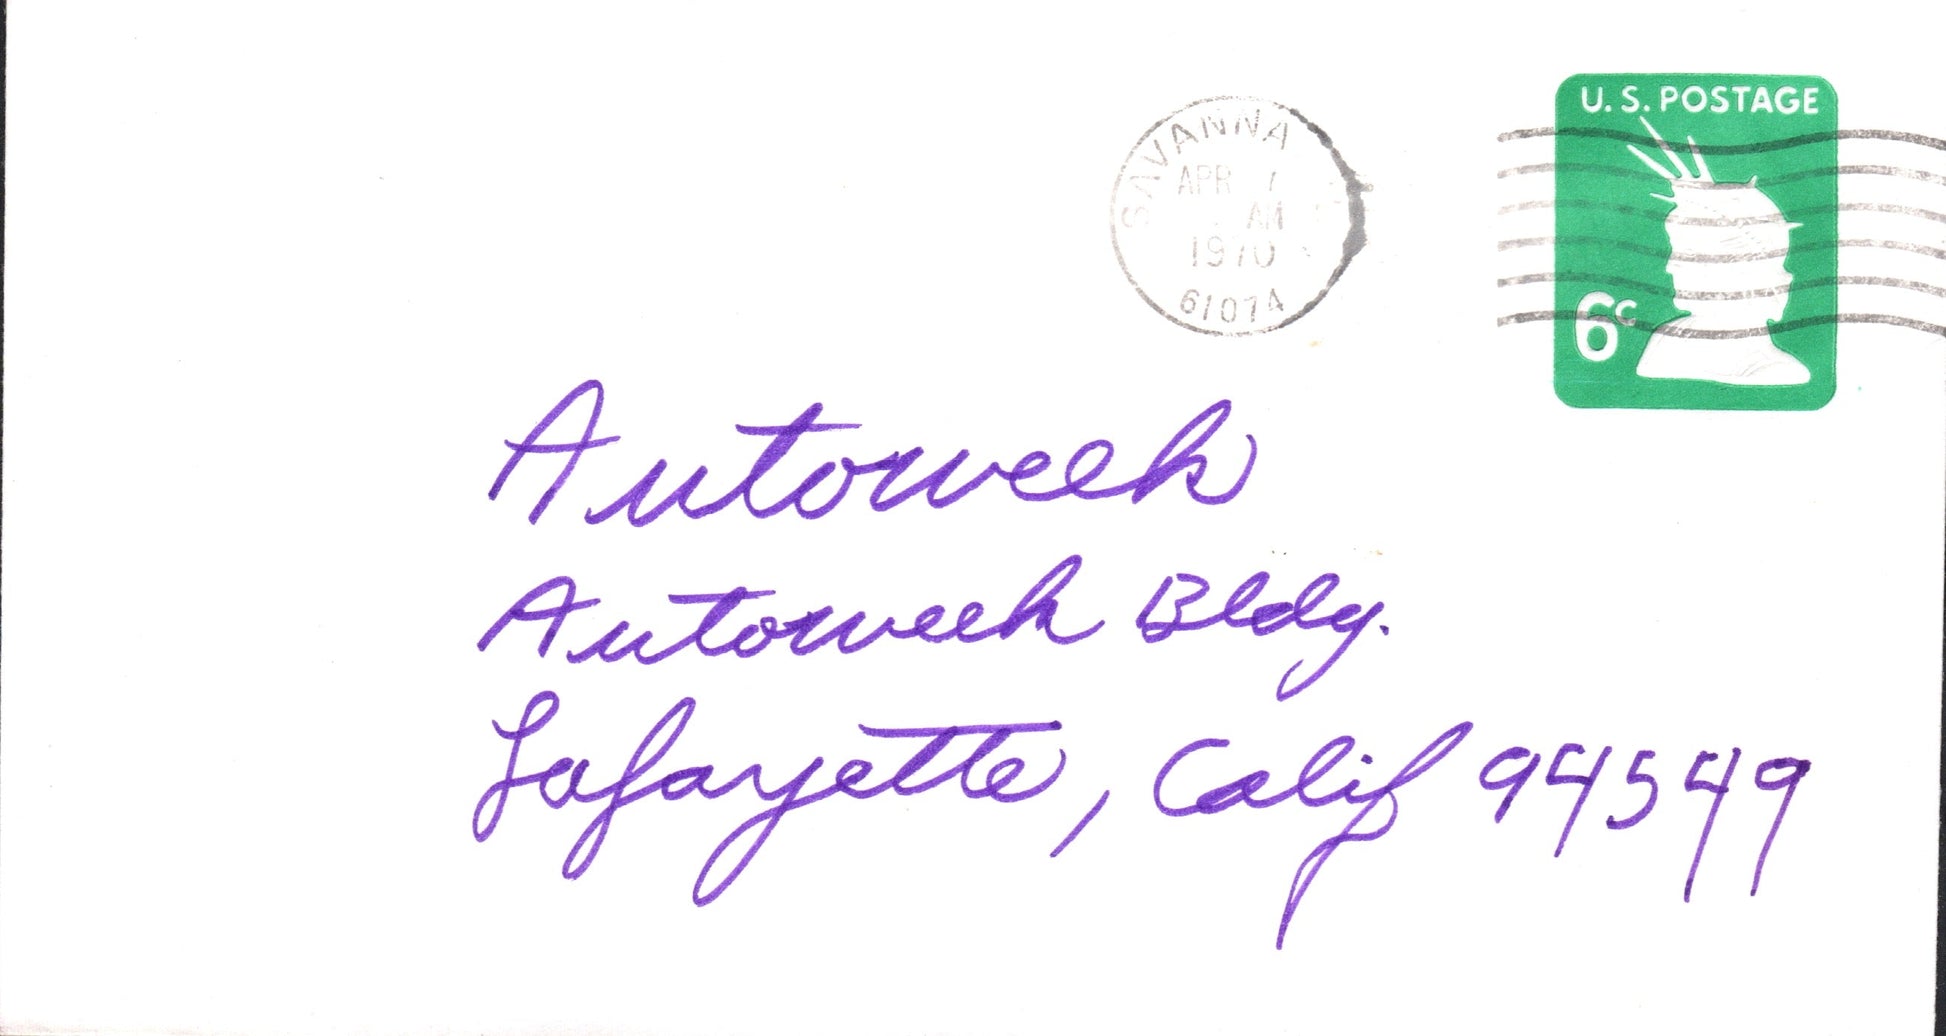 U. S. POSTAGE
6c
SAVANNA
APR
AM
1970
61074
Autoweek
Autoweek Bldg.
Lafayette, Calif 94549